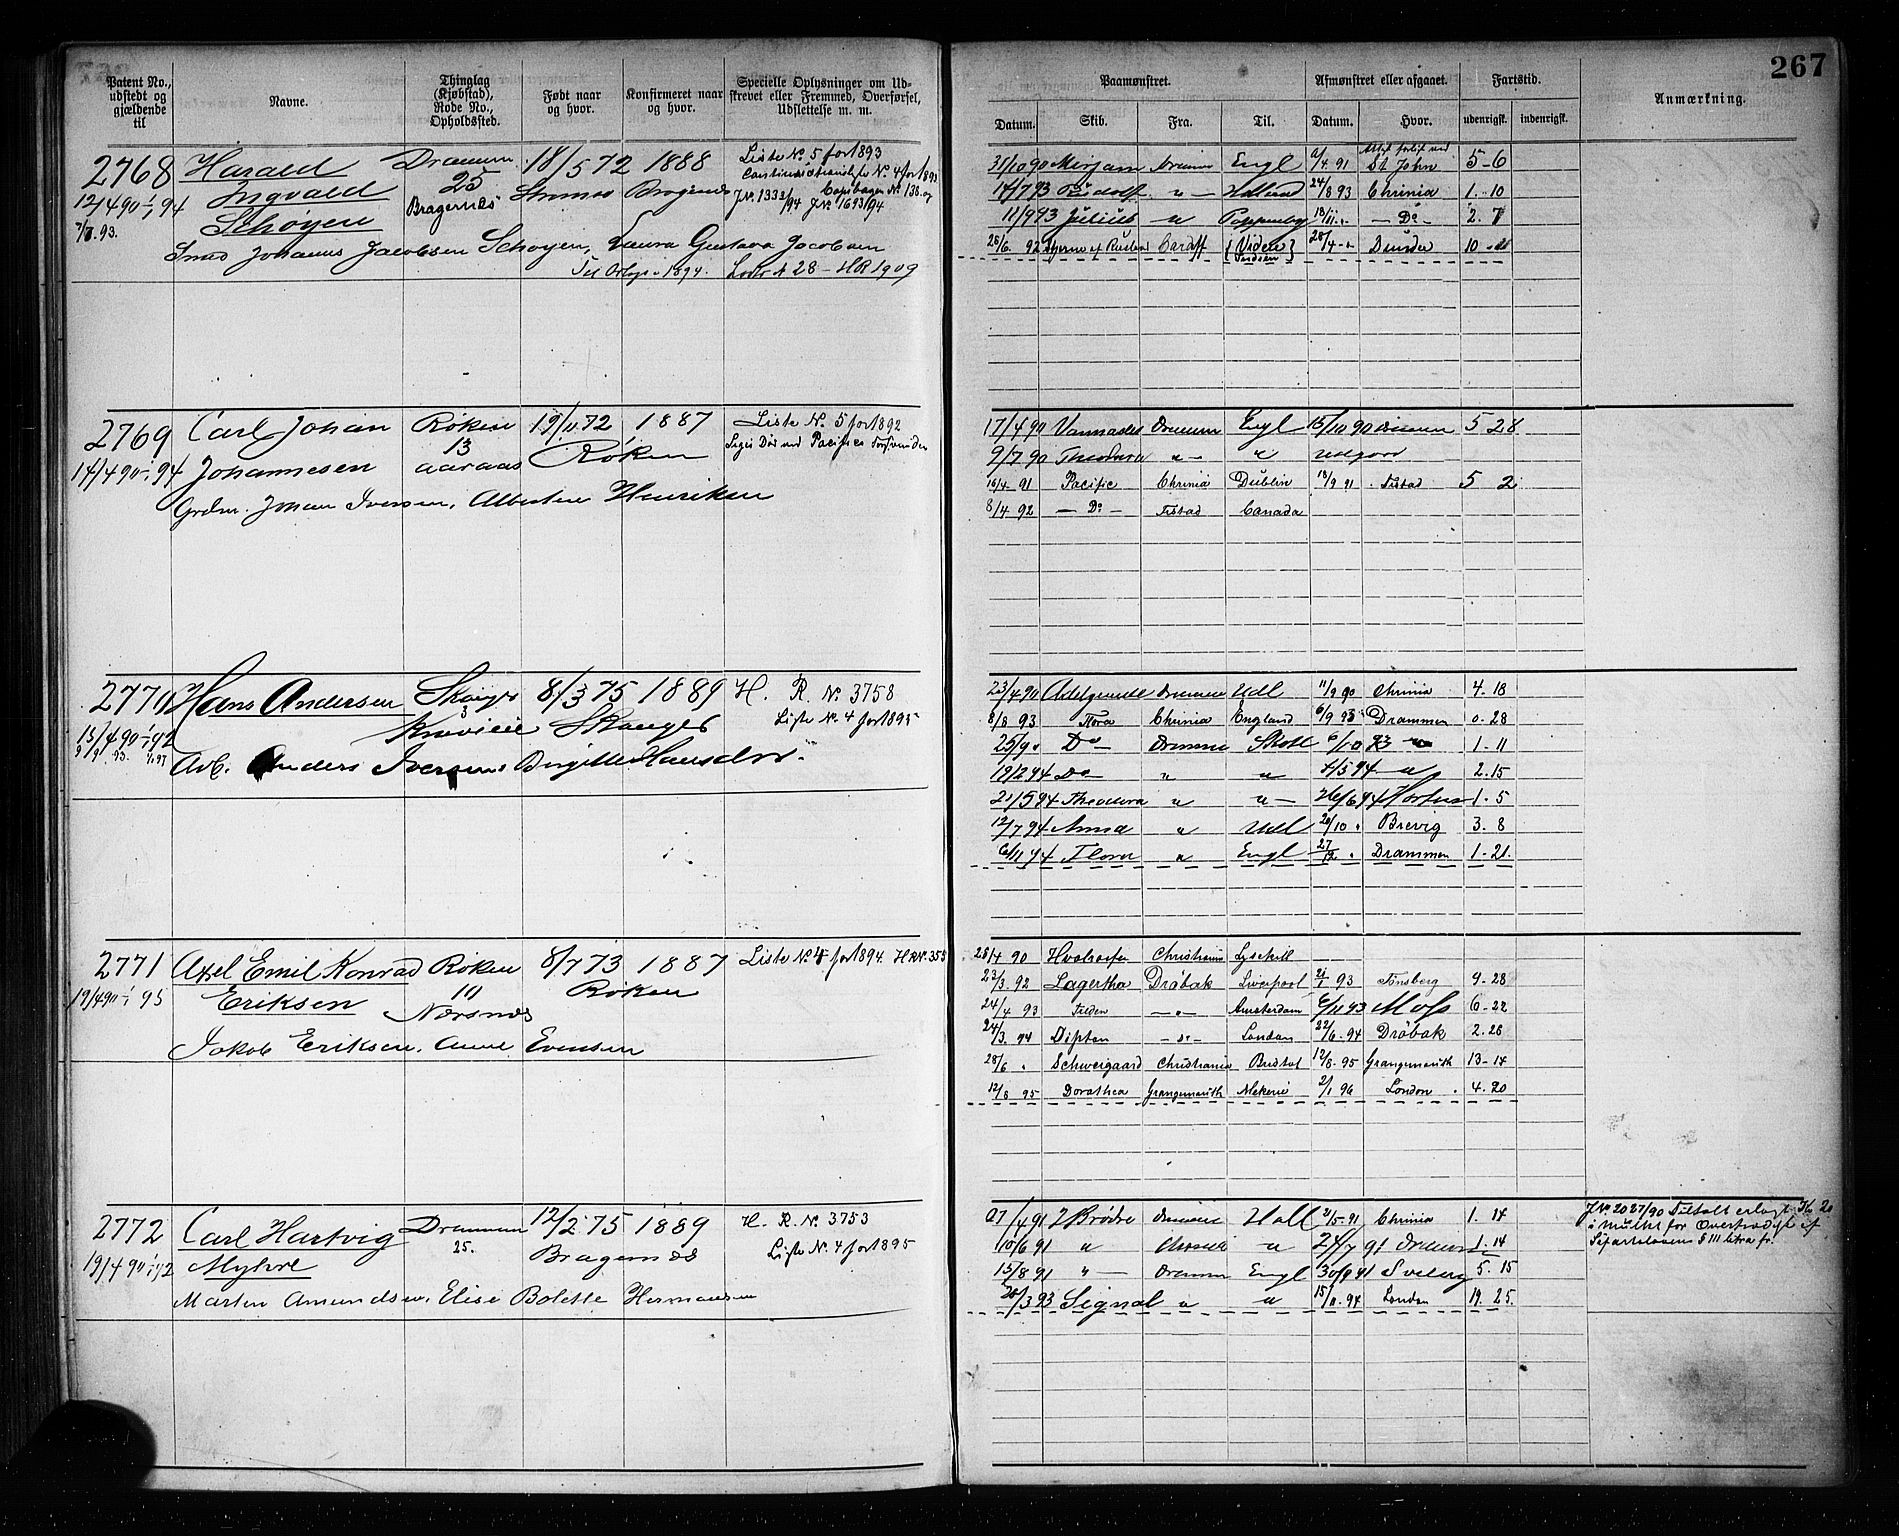 267
Patent No., udstedt og gjældende til
Navne.
Thinglag (Kjøbstad), Rode No., Opholdssted.
Født naar og hvor.
Konfirmeret naar og hvor.
Specielle Oplysninger om Udskrevet eller Fremmed, Overførsel, Udslettelse m. m.
Paamønstret.
Afmønstret eller afgaaet.
Fartstid.
Anmærkning.
Datum. Skib. Fra. Til. Datum. Hvor. udenrigsk. indenrigsk.
2768 Harald Drammen 18/5 72 1888 Liste No. 5 for 1893
12/4 90 - 1/1 94 Ingvald 25 Strømsø Bragernes
Schøyen Bragernes J.No. 1333/94 J.No. 1693/94
Johannes Jacobsen Schøyen, Laura Gustava Jacobsen
1894. 28 - HR 1909
31/10 90 Mirjam Engl 91 St John 5-6
14/7 93 Rudolf " Holland 24/8 93 Chrinia 1-10
11/9 93 Julius " - Do - 2. 7
26/6 92 Cardiff
2769 Carl Johan Røken 19/11 72 1887 Liste No. 5 for 1892
14/4 90 - 1/1 94 Johannesen 13 aaraas Røken
Grdm. Johan Iversen, Albertine Henriksen
17/4 90 Engl 15/10 90 5 28
9/7 90 Theodora " "
16/4 91 Pacific Chrinia Dublin 18/9 91 5 2
8/4 92 - Do - Canada
2770 Hans Andersen Skoger 8/3 75 1889 H. R. No. 3758
15/4 90 - 1/1 92 3 Skoger Liste No. 4 for 1895
Arb. Anders Iversen, Birgitte Hansdtr.
23/4 90 Udl 11/9 90 Chrinia 4. 18
8/8 93 Flora Chrinia England 6/9 93 Drammen 0. 28
25/9 " Do Skotl 6/10 93 " 1-11
19/2 94 Do " " 4/5 94 " 2. 15
21/5 94 Theodora " " 26/6 94 Horten 1. 5
12/7 94 Anna " Udl 20/10 " Brevig 3. 8
6/11 94 Flora " Engl 27/12 " Drammen 1-21.
2771 Axel Emil Konrad Røken 8/7 73 1887 Liste No. 4 for 1894. H R No. 355
19/4 90 - 1/1 95 Eriksen 10 Røken
Nærsnes
Jakob Eriksen, Anne Evensen
28/4 90 Christiania Lysekill
23/3. 92 Lagertha Drøbak Liverpool 21/1 93 Tønsberg 9. 28
24/4 93 - " - Amsterdam 6/11 93 Moss 6-22
24/3. 94 - " - London 22/6. 94 Drøbak 2. 28
28/6 " Schweigaard Christiania Bristol 12/8. 95 Grangemouth 13-14
12/8 95 Dorothea Grangemouth 2/1 96 London 4. 20
2772 Carl Hartvig Drammen 12/2 75 1889 H. R. No. 3753
19/4 90 - 1/1 92 Myhre 25. Bragernes Liste No. 4 for 1895
Marten Amundsen, Elise Bolette Hermansen
27/4 91 2 Brødre Holl 2/5-91 Chrinia 1. 14
10/6 91 " " 24/7 91 1. 14
15/8 91 " Engl 30/9 91 Svelvig 5. 15
28/3 93 Signal " " 15/11. 94 London 19. 25.
J No 2027/90 Tiltalt erlagt Kr 20
i mulkt for Overtrædelse af
Søfartsloven § 111 litra f.